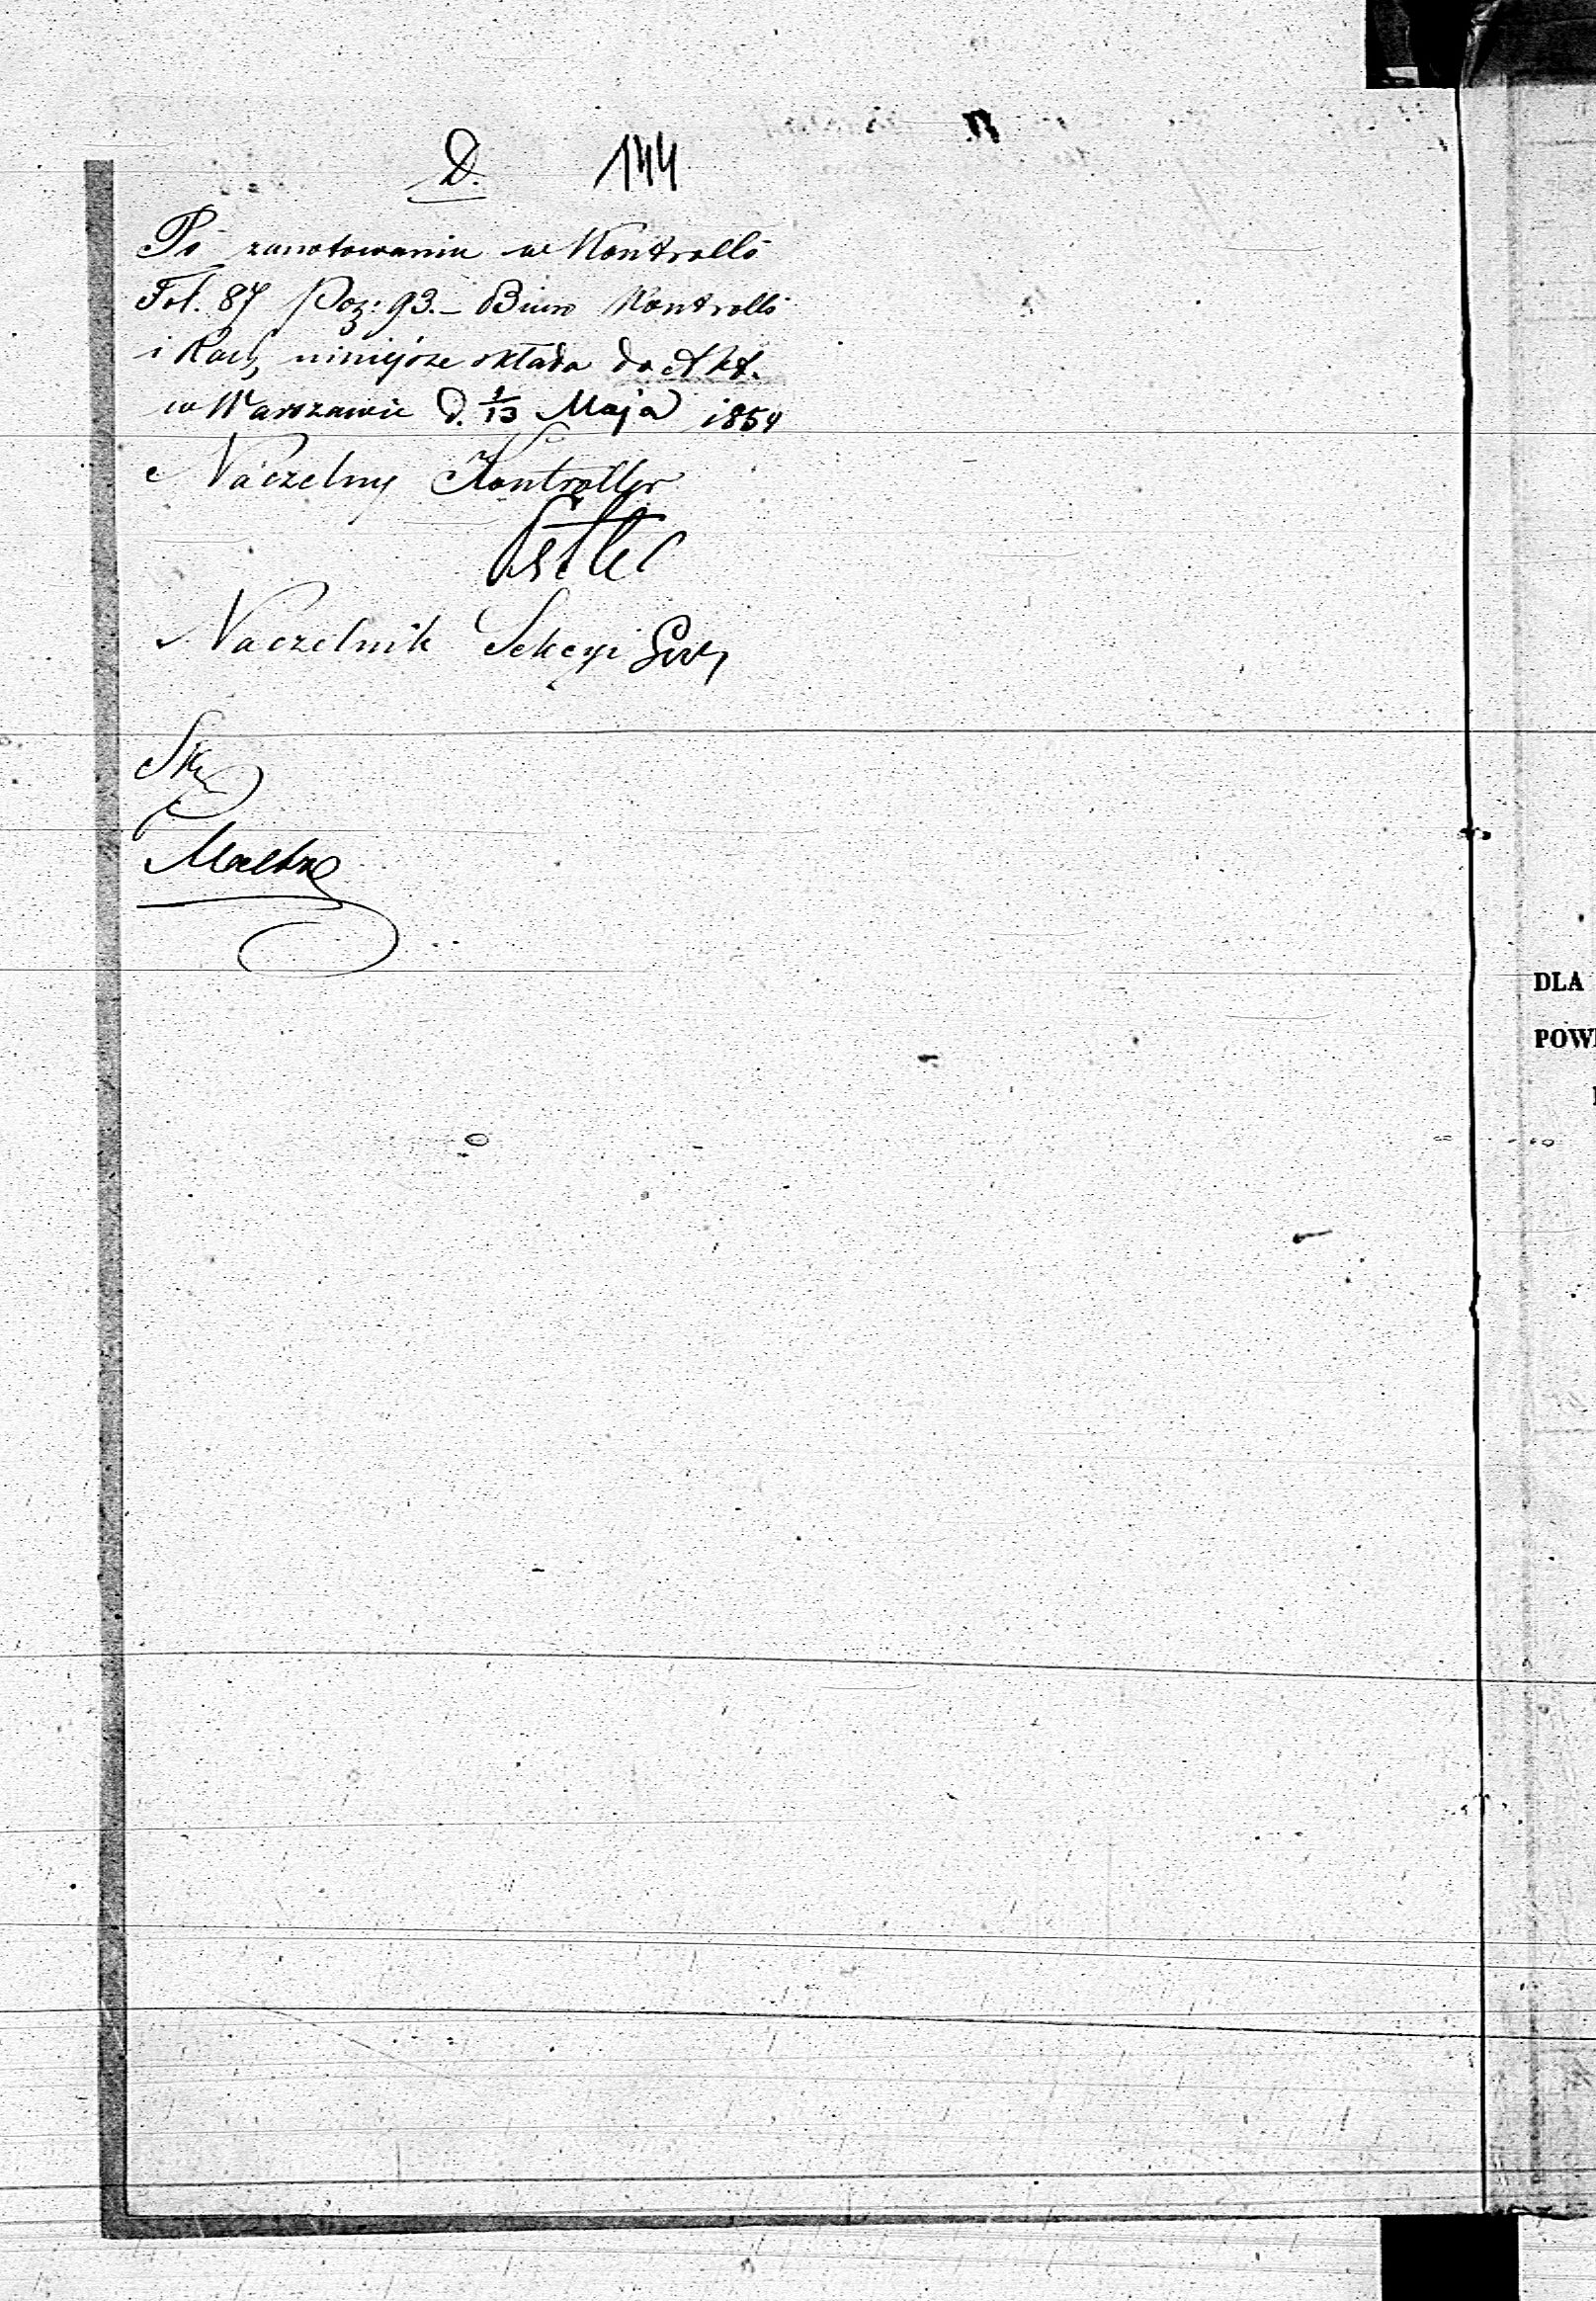 D. 144
Po zanotowaniu w Kontrolli
Fol. 87 Poz: 93. – Biuro Kontrolli
i Rach niniejsze składa do Akt.
w Warszawie d. 1/13 Maja 1854
Naczelny Kontroller
Naczelnik Sekcyi
DLA
POWI